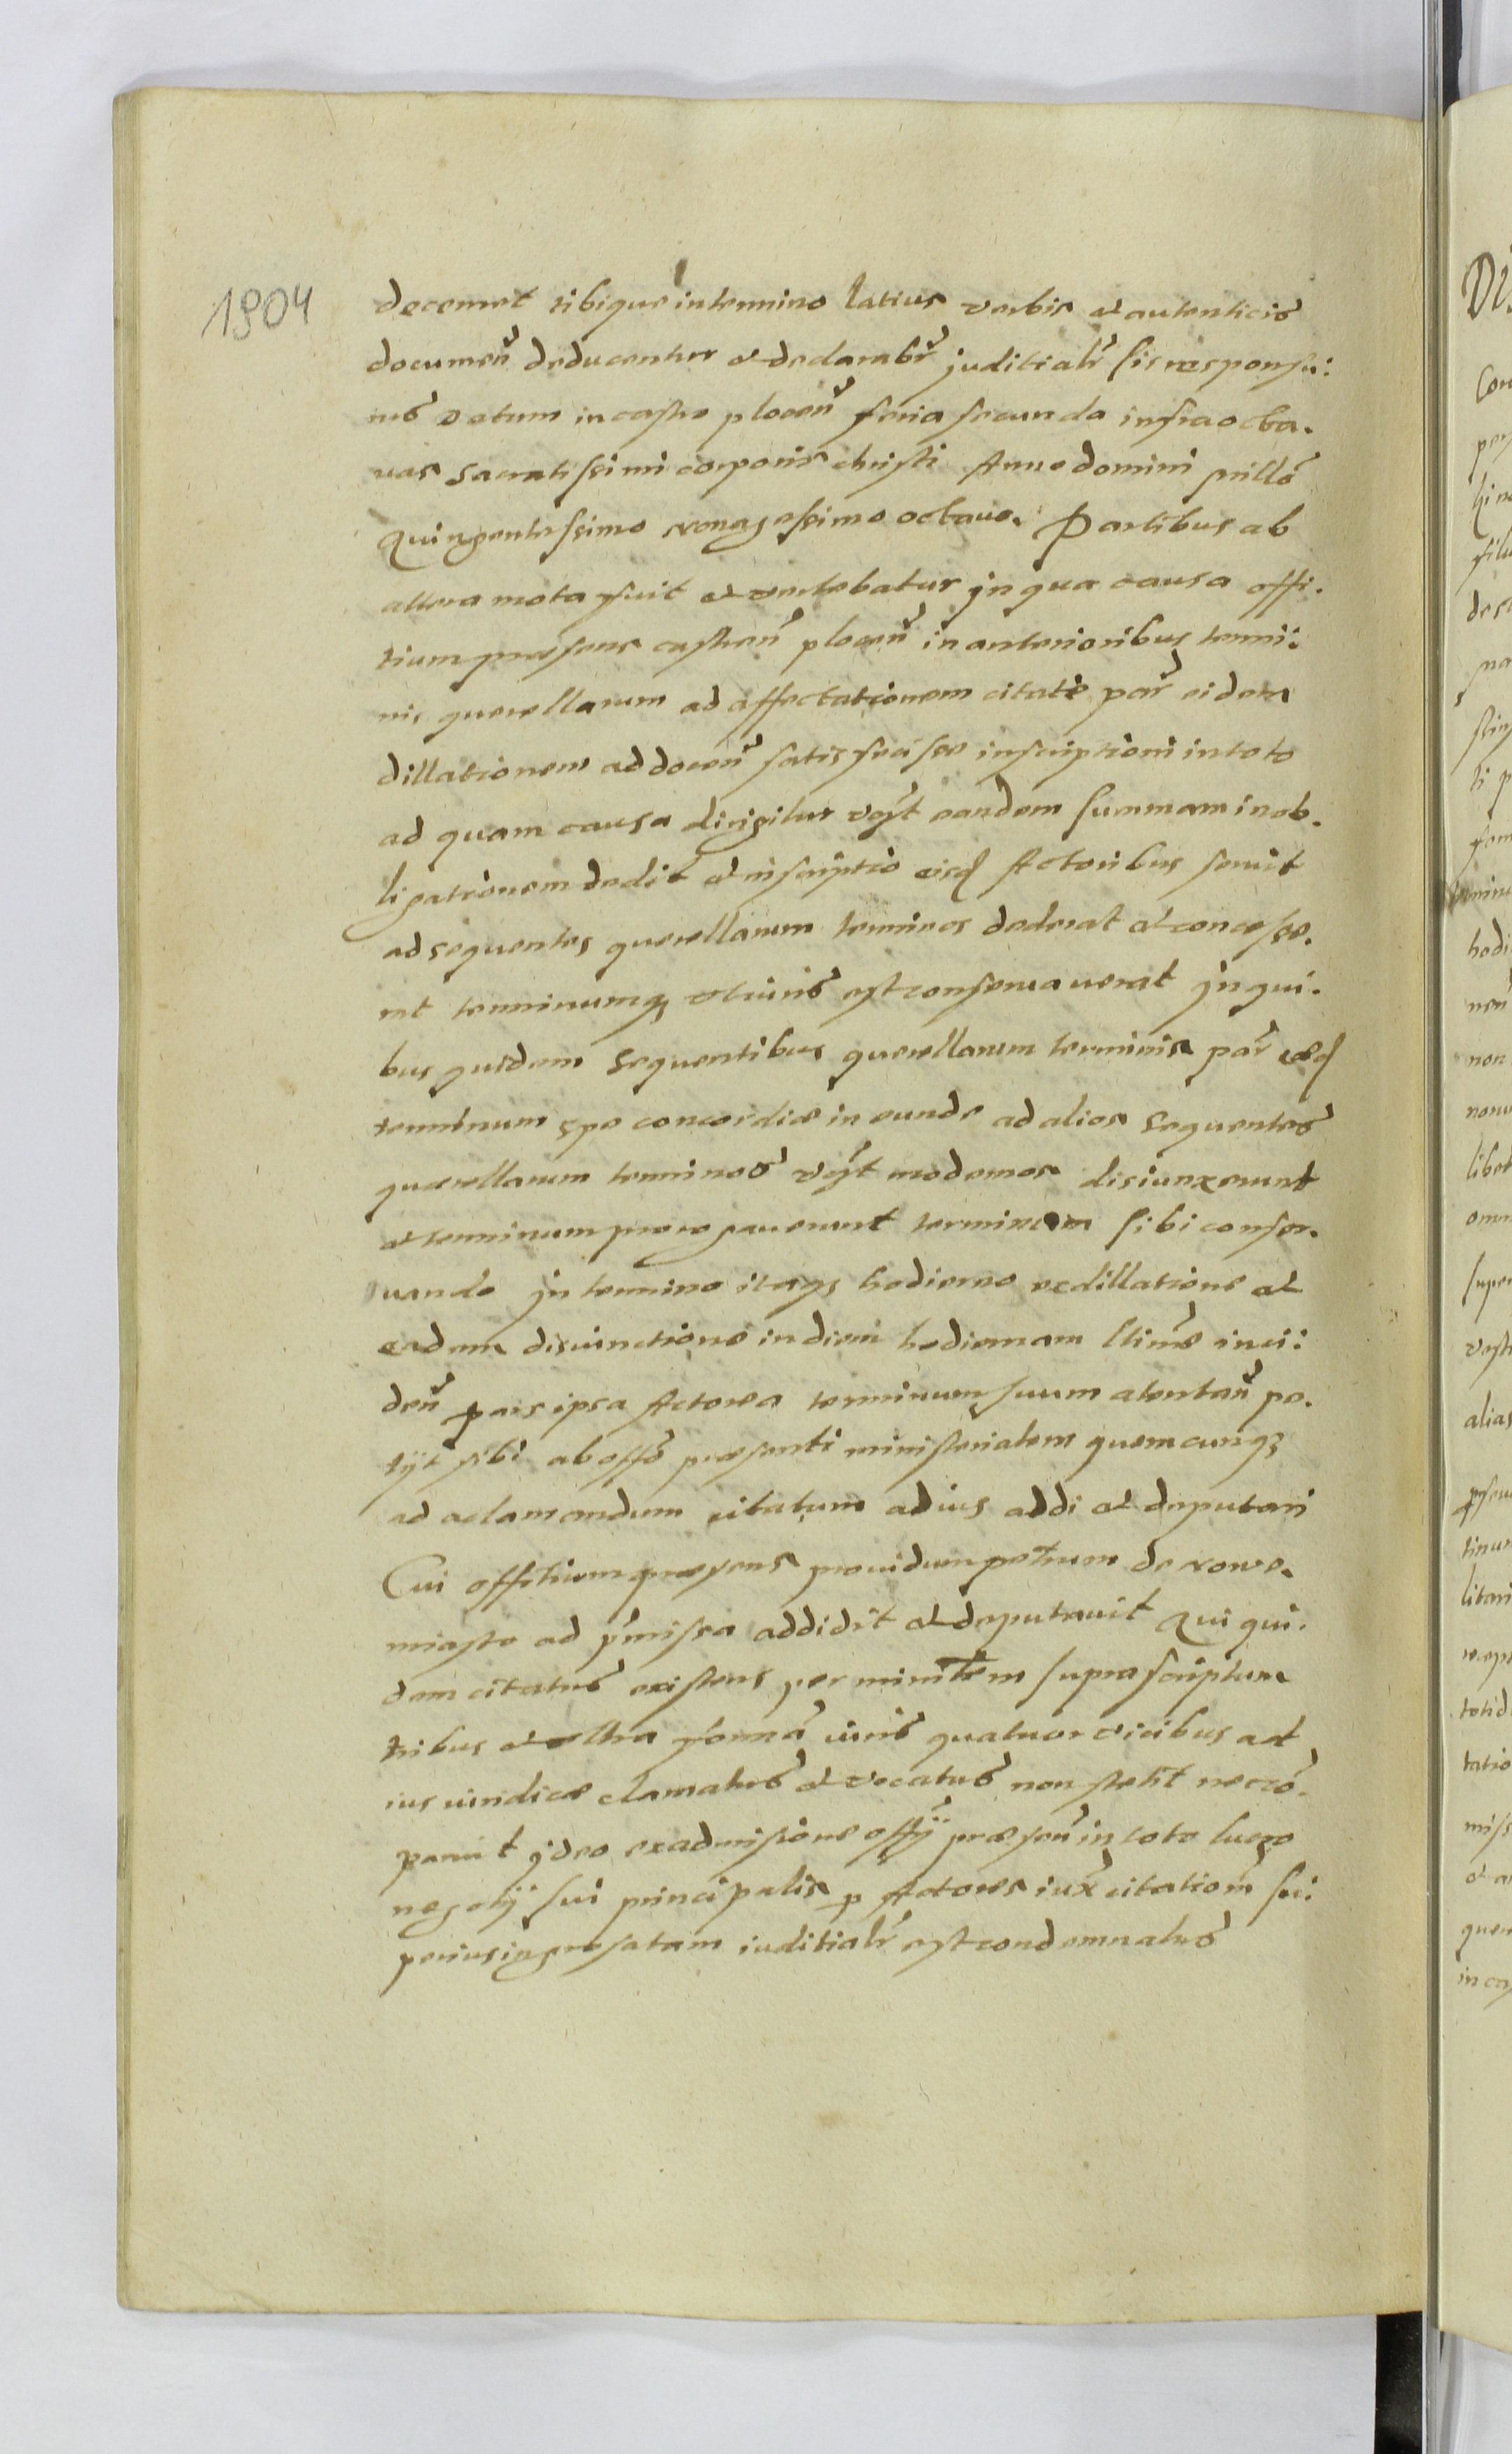 1804
decernet tibique in termino latius verbis et autenticis
documen deducentur et declarabr juditialr sis responsu:
rus Datum in castro plocen feria secunda infra octa.
vas Sacratissimi corporis christi Anno domini millo
Quingentessimo nonagessimo octauo. Partibus ab
altera mota fuit et vertebatur in qua causa offi.
tium præsens castren plocen in anterioribus termi:
nis querellarum ad affectationem citate par eidem
dillationem ad docen satis fecisse inscriptioni in toto
ad quam causa dirigitur vost eandem summam in ob.
ligationem dedit et inscriptio eisd Actoribus seruit
ad sequentes querellarum terminos dederat et concesse.
rat terminumq utriusq est conseruauerat In qui.
bus quidem Sequentibus querellarum terminis par eæd
terminum spe concordiæ in eunde ad alios Sequentes
querellarum terminos vost modernos disiunxerunt
et terminum prorogauerunt terminum sibi conser.
uando In termino itaqz hodierno ex dillatione et
eadem disiunctione in diem hodiernam ltime inci:
den pars ipsa Actorea terminum suum atentan pe.
tyt sibi ab offo præsenti ministerialem quemcunqz
ad aclamandum citatum ad ius addi et deputari
Cui offitium præsens prouidum petrum de nowe.
miasto ad pmissa addidit et deputauit Qui qui.
dem citatus existens per ministrem supra scriptum
tribus et ultra forma iuris quatuor vicibus ad
ius iuridice clamatus et vocatus non stetit nec co.
paruit Ideo ex admissione offy præsen in toto lucro
negoty sui principalis p Actores iux citationem su:
perius ingrosatam iuditialr est condemnatus